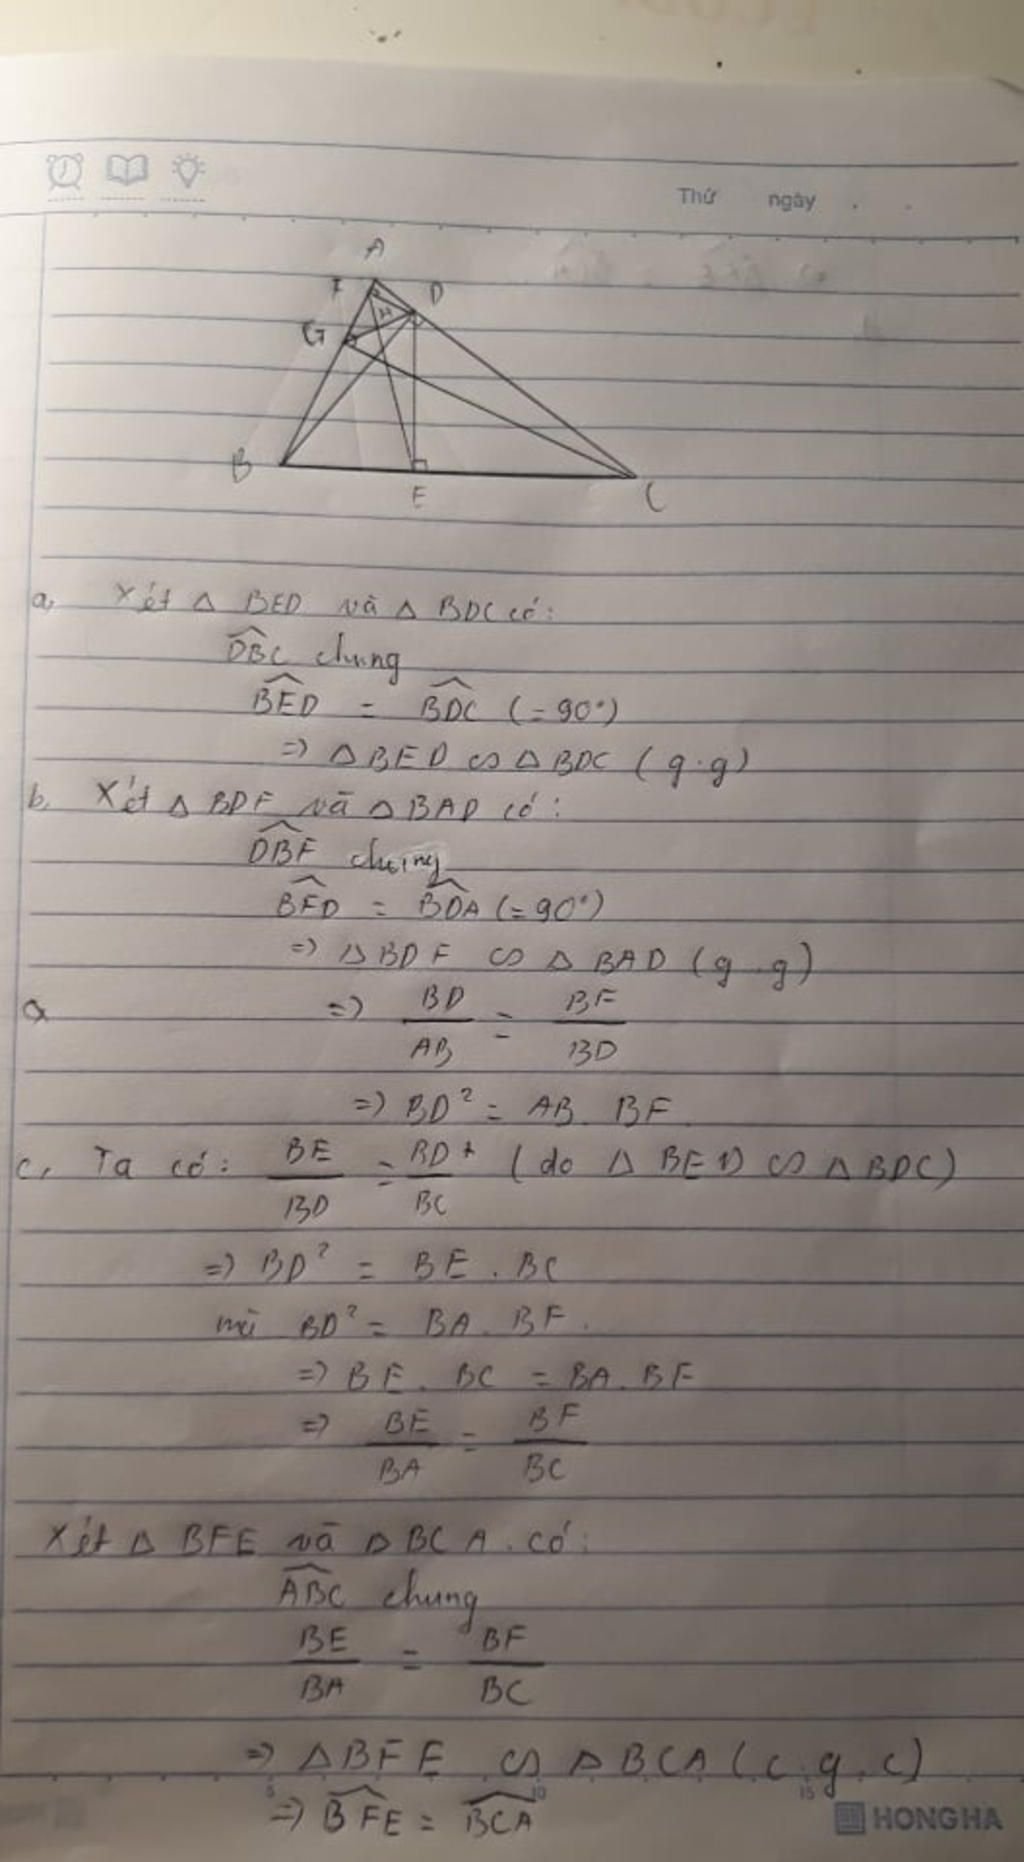 Thứ ngày
A
F
D
H
G
B
E
C
a, Xét △ BED và △ BDC có:
\widehat{DBC} chung
\widehat{BED} = \widehat{BDC} (= 90°)
=> △ BED ∽ △ BDC (g.g)
b, Xét △ BDF và △ BAD có:
\widehat{DBF} chung
\widehat{BFD} = \widehat{BDA} (= 90°)
=> △ BDF ∽ △ BAD (g.g)
=> BD/AB = BF/BD
=> BD² = AB. BF
c, Ta có: BE/BD = BD/BC (do △ BED ∽ △ BDC)
=> BD² = BE . BC
mà BD² = BA. BF.
=> BE. BC = BA. BF
=> BE/BA = BF/BC
Xét △ BFE và △ BCA. có:
\widehat{ABC} chung
BE/BA = BF/BC
=> △ BFE ∽ △ BCA (c.g.c)
5 10 15
=> \widehat{BFE} = \widehat{BCA}
HONG HA